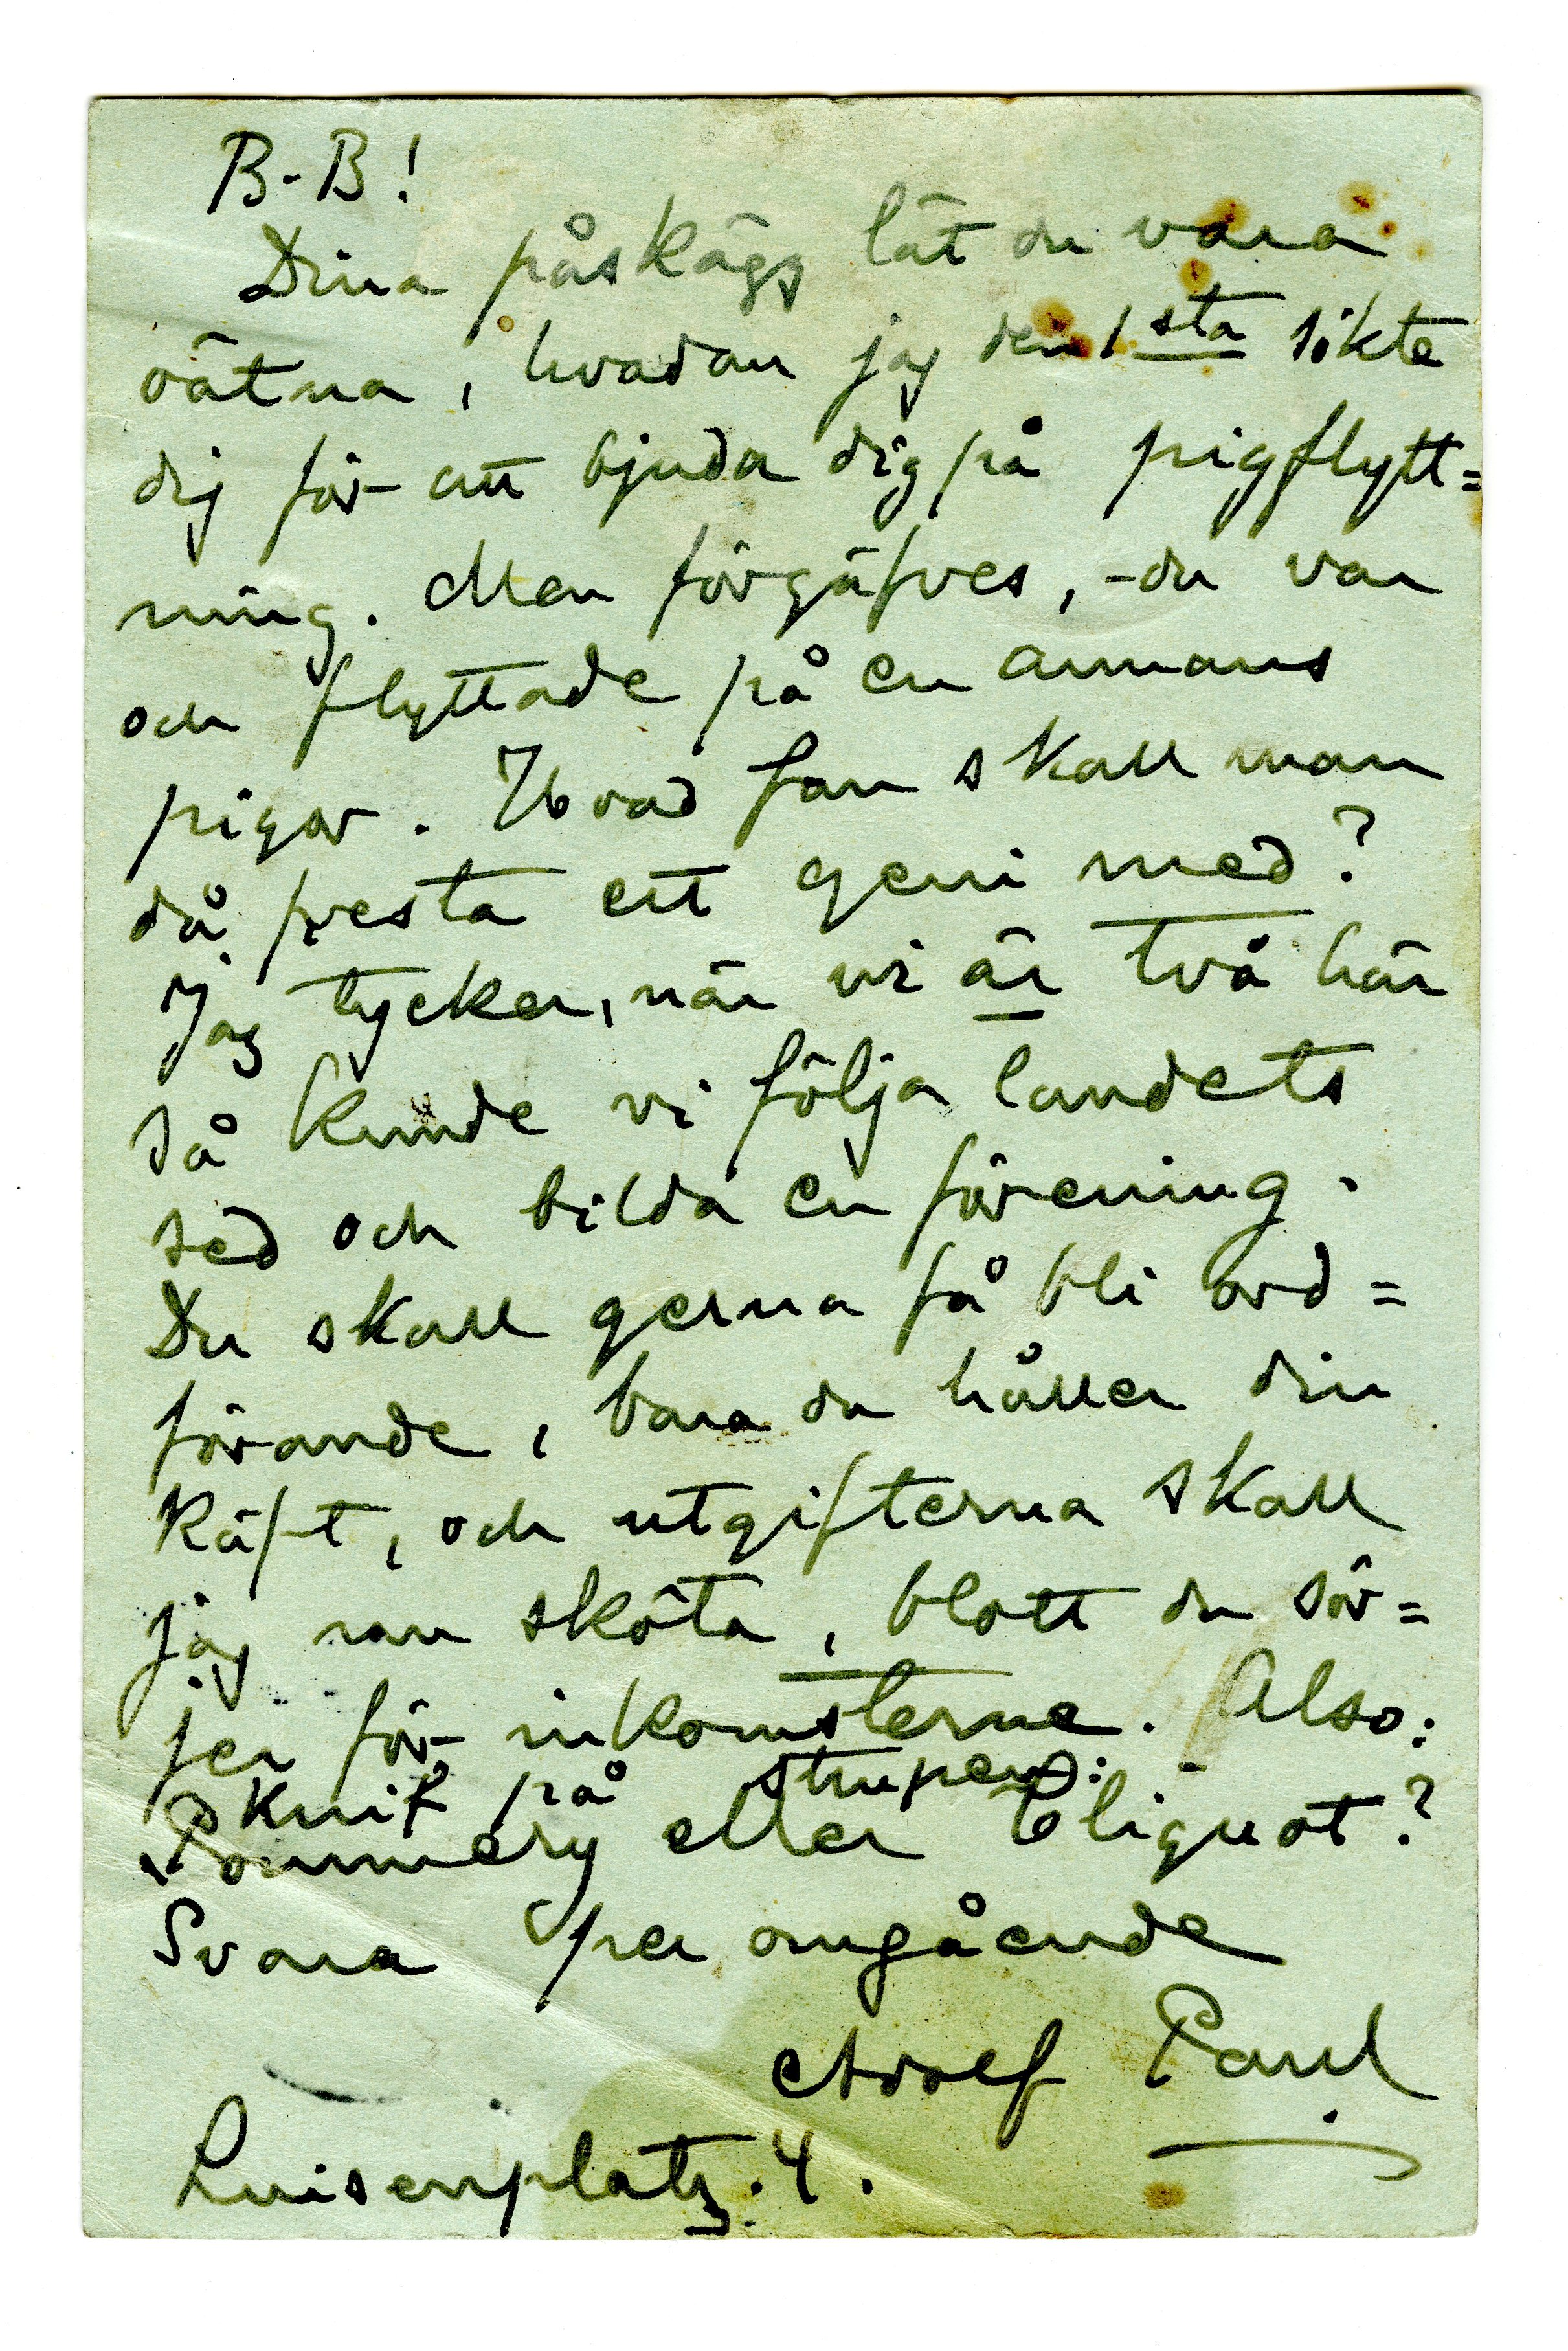 B-B!
Dina påskägg lät du vara
oätna, hvadan jag den 1sta sökte
dig för att bjuda dig på pigflytt=
ning. Men förgäfves, -du var
och flyttade på en annans
pigor. Hvad fan skall man
då fresta ett geni med?
Jag tycker, när vi är två här
så kunde vi följa landets
sed och bilda en förening.
Du skall gerna få bli ord=
förande, bara du håller din
käft, och utgifterna skall
jag nan sköta, blott du sör=
jer för inkomsterna. Also:
Knif på strupen:
Pommery eller Cliquot?
Svara per omgående
Adolf Paul
Luisenplatz. 4.